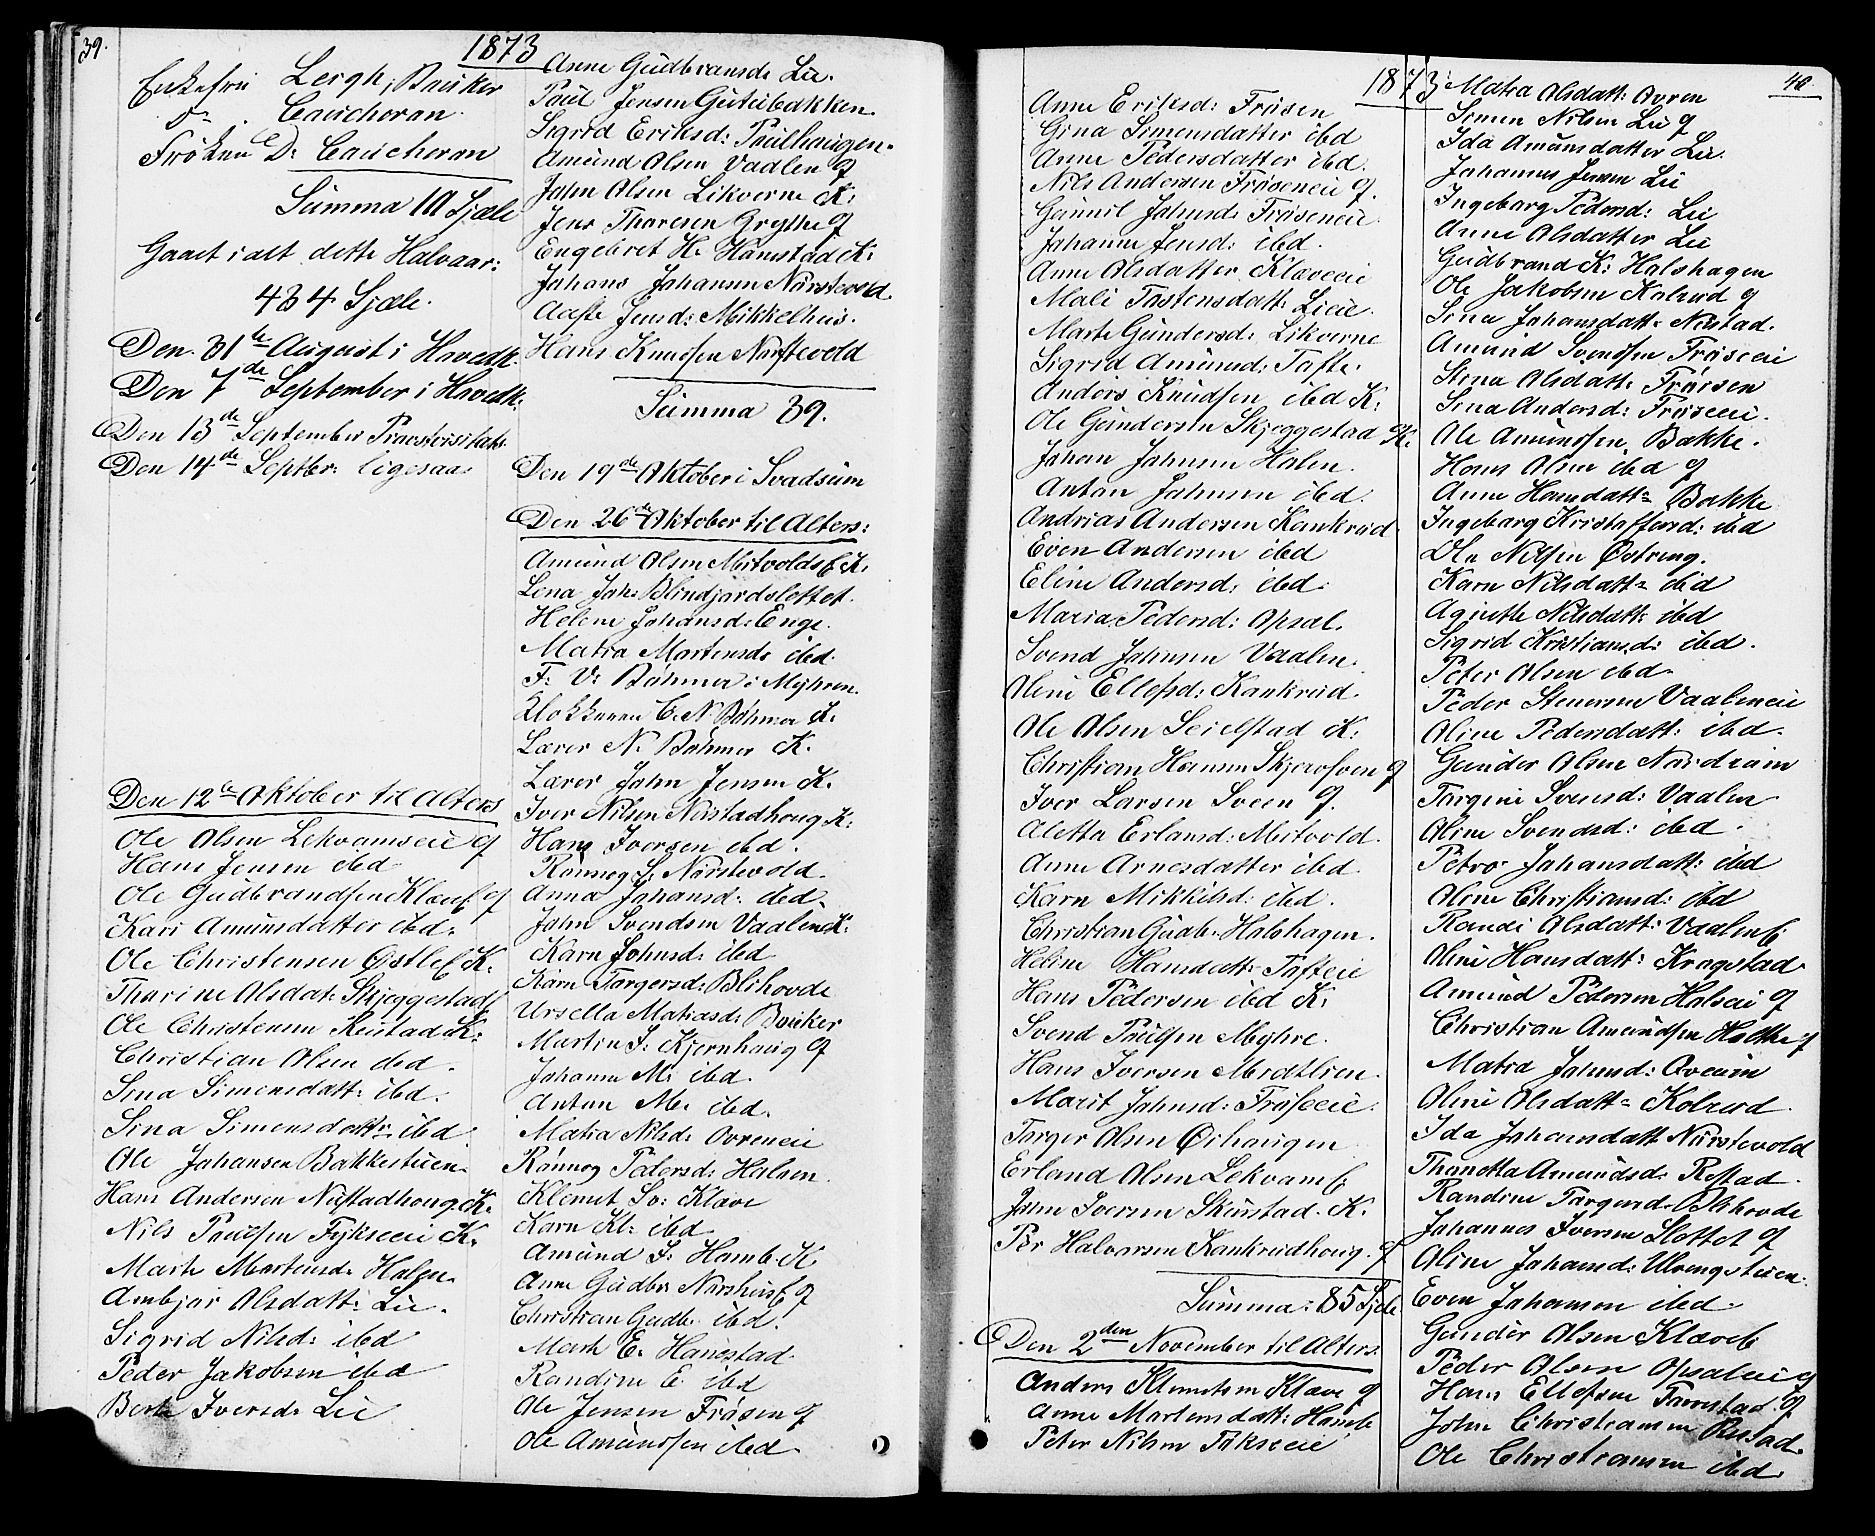 39.
1873
Enkefru Lergh, Bruker
Do. Caucheron
Frøken D: Caucheron
Summa 10 Sjæle
Gaaet i alt dette Halvaar:
434 Sjæle.
Den 31te August i Hovedk.
Den 7de September i Hovedk:
Den 13de September Præstevisitats
Den 14de Septbr: ligesaa.
Den 12te Oktober til Alters
Ole Olsen Lekvamseie g
Hans Jensen ibd
Ole Gudbrandsen Klæve g
Kari Amunsdatter ibd:
Ole Christensen Østlef K.
Thorine Olsdat: Skjeggestad
Ole Christensen Rustad K:
Christian Olsen ibd.
Sina Simensdatt: ibd.
Sina Simensdatt: ibd
Ole Johansen Bakkestuen.
Hans Andersen Nustadhoug K.
Nils Paulsen Fykseeie K.
Marte Martensd: Holen.
Ambjør Olsdatt: Lie.
Sigrid Nilsd: ibd
Peder Jakobsen ibd
Berte Iversd: Lie
Anne Gudbransd: Lie.
Paul Jensen Gutubakken
Sigrid Eriksd: Paulhaugen.
Amund Olsen Vaalen g
John Olsen Likverne K:
Jens Thoresen Grythe g
Engebret H. Hamstad K:
Johans Johansen Norstevold
Aaste Jensd: Mikkelhus.
Hans Knudsen Norstevold
Summa 39.
Den 19de Oktober i Svadsum
Den 26de Oktober til Alters:
Amund Olsen Mytvolds K.
Lena Joh: Blindjordslettet.
Helene Johansd: Enge.
Matia Martensd: ibd.
F: V: Bøhmer i Myhren.
Klokkeren C. N. Bøhmer K.
Lærer N. Bøhmer K.
Lærer John Jensen K.
Iver Nilsen Nustadhoug K:
Hans Iversen ibd.
Rønnog S. Norstevold.
Anna Johansd: ibd.
John Svendsen Vaalen K:
Karn Johnsd: ibd
Karn Torgersd: Blihovde
Ursella Matiasd: Bruker
Martin J: Kjernhaug g
Johanne M: ibd.
Anton M: ibd.
Matia Nilsd: Ovreneie
Rønnog Pedersd: Holsen
Klemet Sv: Klæve
Karn Kl: ibd
Amund J: Hamb. K
Anne Gudbr: Norshus g
Christian Gudb: ibd.
Marte E. Hanestad
Randine E. ibd
Ole Jensen Frøsen g
Ole Amundsen ibd
1873
40.
Anne Eriksd: Frøsen
Gina Simensdatter ibd
Anne Pedersdatter ibd.
Nils Andersen Frøseneie g.
Gunnil Johnsd: Frøseneie
Johanne Jensd: ibd.
Anne Olsdatter Klæveeie
Mali Tostensdatt: Lieie.
Marte Gundersd: Likverne
Sigrid Amund: Tofte.
Anders Knudsen ibd K:
Ole Gundersen Skjeggestad K.
Johan Johnsen Holen.
Anton Johnsen ibd.
Andrias Andersen Kankrud
Even Andersen ibd
Eline Andersd: ibd.
Maria Pedersd: Opsal.
Svend Johnsen Vaalen.
Oline Ellefsd: Kankrud.
Ole Olsen Seielstad K:
Christian Hansen Skjervsven g
Iver Larsen Sveen g.
Aletta Erlansd: Mitvold.
Anne Arnesdatter ibd
Karn Mikkelsd: ibd.
Christian Gudb: Holshagen.
Heline Hansdatt: Tofteeie
Hans Pedersen ibd K:
Svend Paulsen Myhre.
Hans Iversen Mrdtlien.
Marit Johnsd: Frøseeie
Torger Olsen Ørhaugen
Erland Olsen Lekvam
John Iversen Skeistad K.
Per Halvorsen Kankrudhoug. g
Summa: 85 Sjele
Den 2den November til Alters.
Anders Klemetsen Klæve g
Anne Martensdatt: Hamb
Peter Nilsen Fykseeie
Matia Olsdatt: Ovren
Simen Nilsen Lie g
Ida Amunsdatter Lie.
Johannes Jensen Lie
Ingeborg Pedersd: Lie
Anne Olsdatter Lie
Gudbrand K: Holshagen
Ole Jakobsen Kolrud g
Sina Johansdatt: Nustad.
Amund Svendsen Frøseeie
Stina Olsdatt: Frøysen
Sina Andersd: Frøseeie.
Ole Amundsen Bakke.
Hans Olsen ibd g
Anne Hansdatt: Bakke
Ingeborg Kristoffersd: ibd
Ole Nilsen Østreng.
Karn Nilsdatt: ibd
Agnethe Nilsdatt: ibd
Sigrid Kristiansd: ibd.
Peter Olsen ibd
Peder Stenersen Vaaleneie
Oline Pedersdatt: ibd.
Gunder Olsen Nordrum
Torgine Svensd: Vaalen
Oline Svendsd: ibd.
Petra Johansdatt: ibd
Oline Christiansd: ibd
Randi Olsdatt: Vaalen
Oline Hansdatt: Kragstad
Amund Pedersen Holseie g
Christian Amundsen Holthe g
Matia Johnsd: Qveum
Oline Olsdatt: Kolrud.
Ida Johansdatt Norstevold
Thonetta Amundsd: Rostad.
Randine Torgersd: Blihovde
Johannes Iversen Slettet g
Oline Johansd: Ulvengstuen.
Even Johansen ibd.
Gunder Olsen Klæve
Peder Olsen Opsaleie g
Hans Ellefsen Forrestad. g
John Christiansen Rustad.
Ole Christiansen ibd.